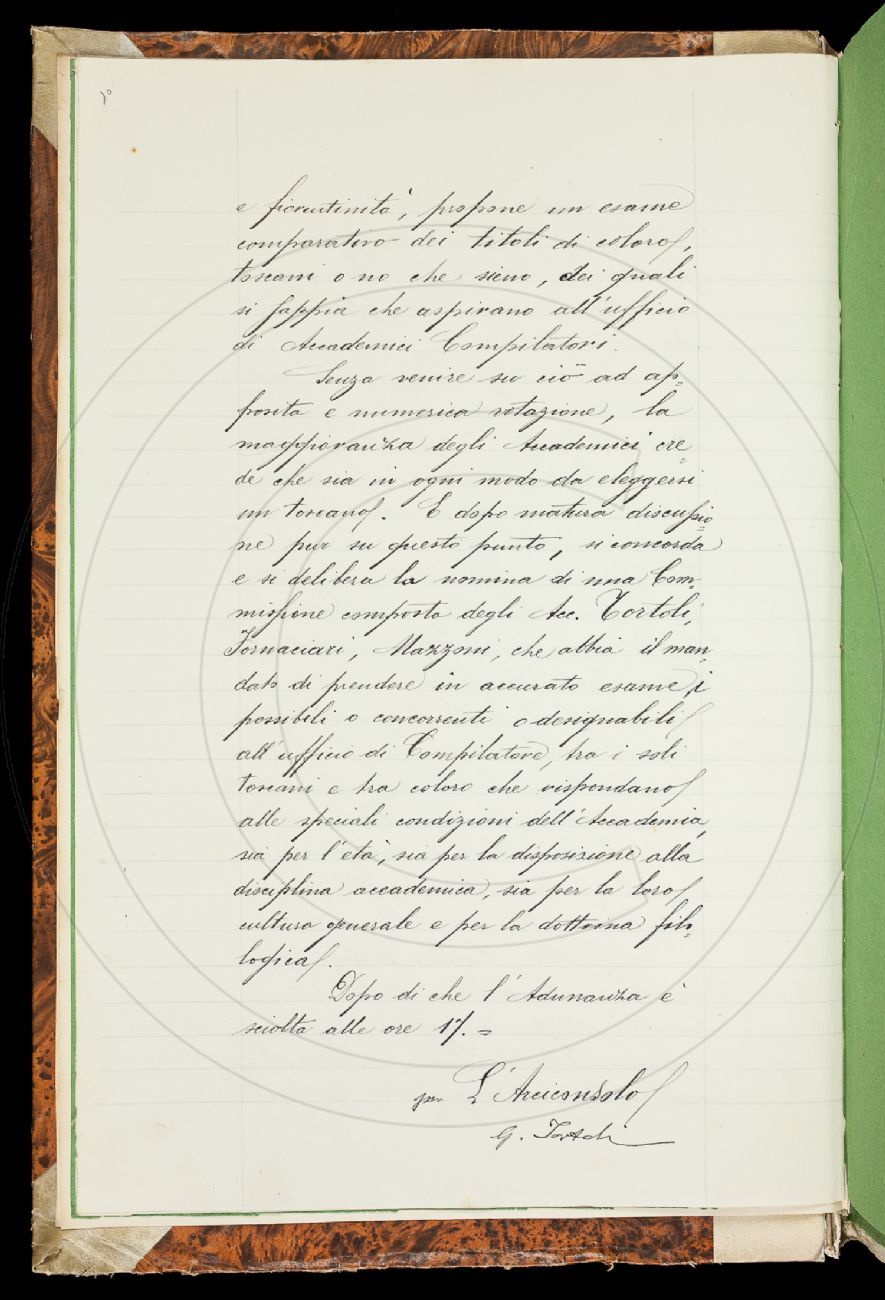 e fiorentinità, propone un esame
comparativo dei titoli di coloro,
toscani o no che sieno, dei quali
si sappia che aspirano all'ufficio
di Accademici Compilatori.
Senza venire su ciò ad ap=
posita e numerica votazione, la
maggioranza degli Accademici cre
de che sia in ogni modo da eleggersi
un toscano. E dopo matura discussio=
ne pur su questo punto, si concorda
e si delibera la nomina di una Com=
missione composta degli Acc. Tortoli,
Fornaciari, Mazzoni, che abbia il man=
dato di prendere in accurato esame i
possibili o concorrenti o designabili
all'ufficio di Compilatore, tra i soli
toscani e tra coloro che rispondano
alle speciali condizioni dell'Accademia,
sia per l'età, sia per la disposizione alla
disciplina accademica, sia per la loro
cultura generale e per la dottrina filo=
logica.
Dopo di che l'Adunanza è
sciolta alle ore 17. =
per L'Arciconsolo
G. Tortoli